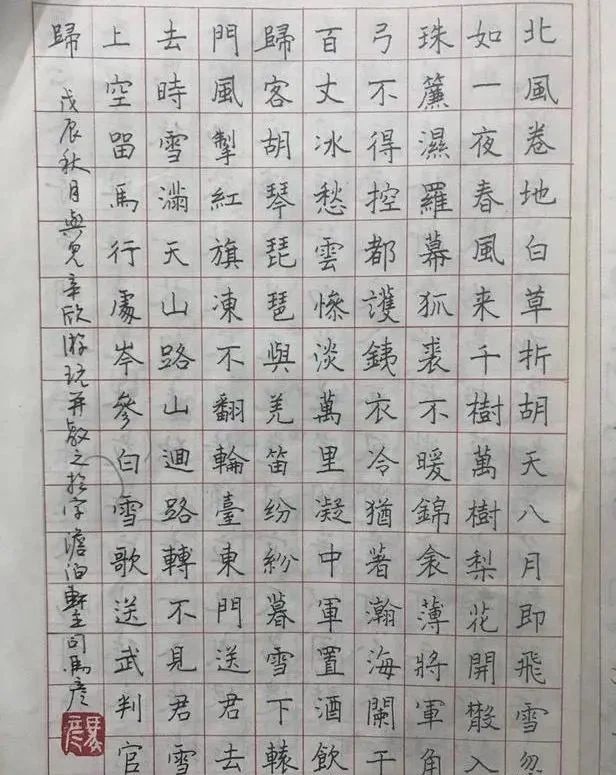 北風卷地白草折胡天八月即飛雪忽
如一夜春風来千樹萬樹梨花開散入
珠簾濕羅幕狐裘不暖錦衾薄將軍角
弓不得控都護銕衣冷猶著瀚海闌干
百丈冰愁雲慘淡萬里凝中軍置酒飲
歸客胡琴琵琶與羌笛紛紛暮雪下轅
門風掣紅旗凍不翻輪臺東門送君去
去時雪滿天山路山迴路轉不見君雪
上空留馬行處岑參白雪歌送武判官
歸
戊辰秋月與兒辛欣游玩并教之於字澹泊軒主司馬彦